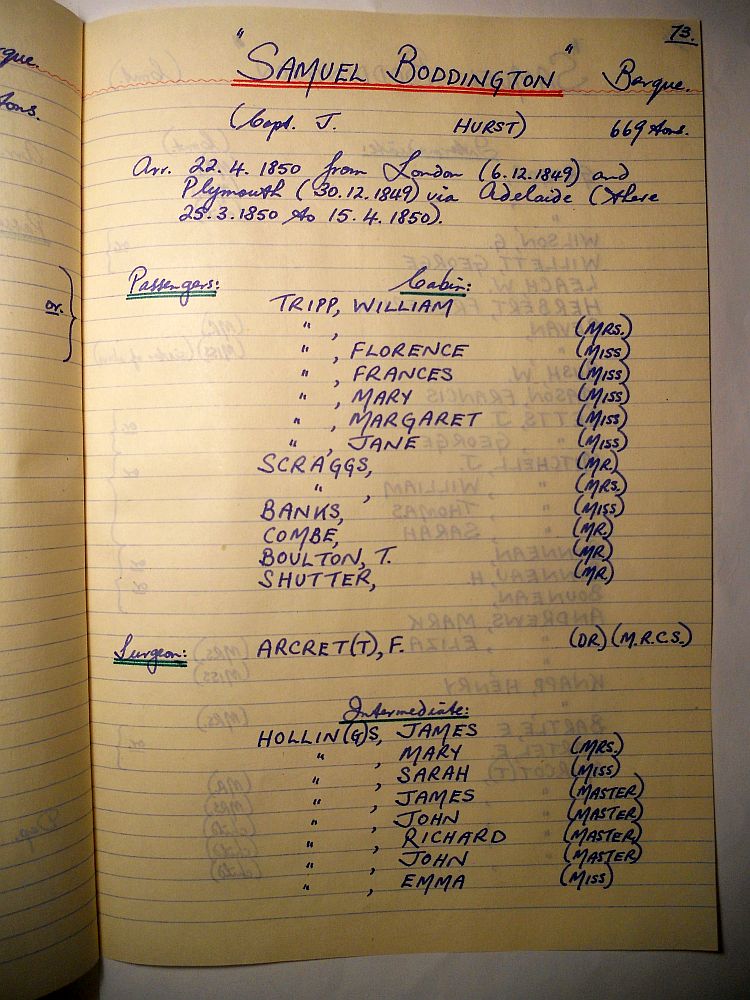 73.
"SAMUEL BODDINGTON" Barque.
(Capt. J. HURST) 669 tons.
Arr. 22.4.1850 from London (6.12.1849) and
Plymouth (30.12.1849) via Adelaide (there
25.3.1850 to 15.4.1850).
Passengers: Cabin:
TRIPP, WILLIAM
" , (MRS.)
" , FLORENCE (MISS)
" , FRANCES (MISS)
" , MARY (MISS)
" , MARGARET (MISS)
" , JANE (MISS)
SCRAGGS, (MR.)
" , (MRS.)
BANKS, (MISS)
COMBE, (MR.)
BOULTON, T. (MR.)
SHUTTER, (MR)
Surgeon: ARCRET(T), F. (DR.) (M.R.C.S.)
Intermediate:
HOLLIN(G)S, JAMES
" , MARY (MRS.)
" , SARAH (MISS)
" , JAMES (MASTER)
" , JOHN (MASTER)
" , RICHARD (MASTER)
" , JOHN (MASTER)
" , EMMA (MISS)
tons.
or.